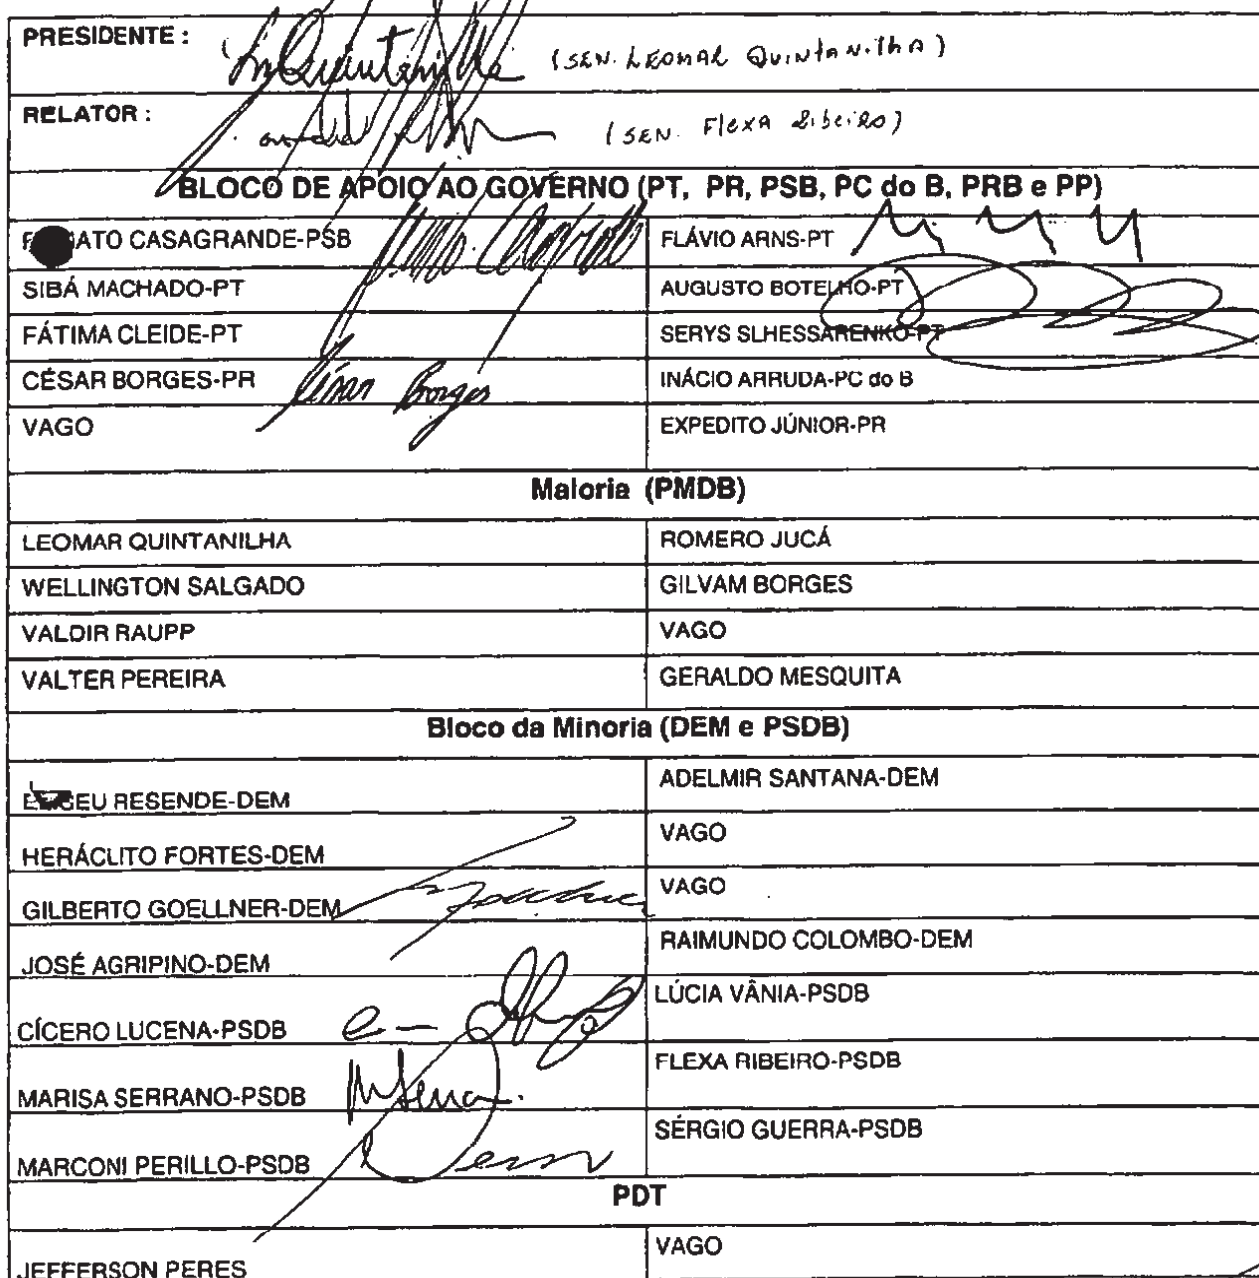 PRESIDENTE : (SEN. LEOMAR QUINTANILHA)
RELATOR : (SEN. FlexA Ribeiro)
BLOCO DE APOIO AO GOVERNO (PT, PR, PSB, PC do B, PRB e PP)
ATO CASAGRANDE-PSB FLÁVIO ARNS-PT
SIBÁ MACHADO-PT AUGUSTO BOTELHO-PT
FÁTIMA CLEIDE-PT SERYS SLHESSARENKO-PT
CÉSAR BORGES-PR César Borges INÁCIO ARRUDA-PC do B
VAGO EXPEDITO JÚNIOR-PR
Maioria (PMDB)
LEOMAR QUINTANILHA ROMERO JUCÁ
WELLINGTON SALGADO GILVAM BORGES
VALDIR RAUPP VAGO
VALTER PEREIRA GERALDO MESQUITA
Bloco da Minoria (DEM e PSDB)
EU RESENDE-DEM ADELMIR SANTANA-DEM
HERÁCLITO FORTES-DEM VAGO
GILBERTO GOELLNER-DEM VAGO
JOSÉ AGRIPINO-DEM RAIMUNDO COLOMBO-DEM
CÍCERO LUCENA-PSDB LÚCIA VÂNIA-PSDB
MARISA SERRANO-PSDB FLEXA RIBEIRO-PSDB
MARCONI PERILLO-PSDB SÉRGIO GUERRA-PSDB
PDT
JEFFERSON PERES VAGO